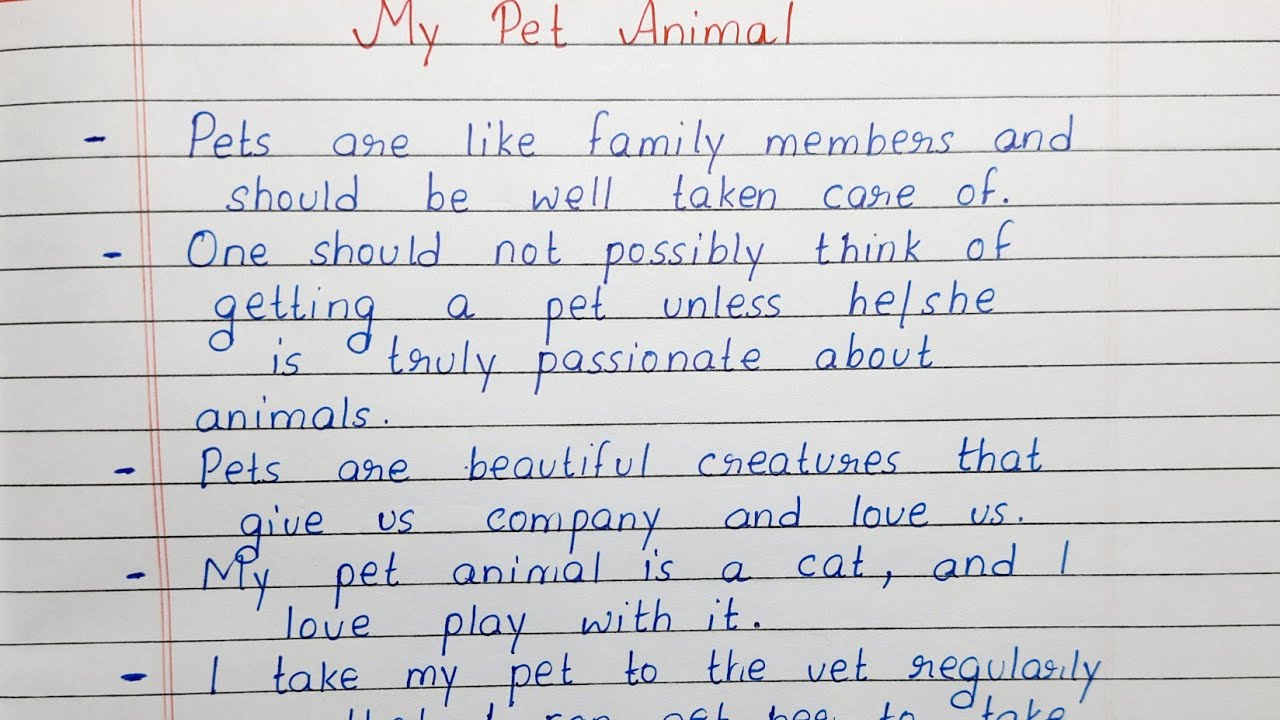 My Pet Animal
- Pets are like family members and
should be well taken care of.
- One should not possibly think of
getting a pet unless he/she
is truly passionate about
animals.
- Pets are beautiful creatures that
give us company and love us.
- My pet animal is a cat, and I
love play with it.
- I take my pet to the vet regularily
that I can get her to take